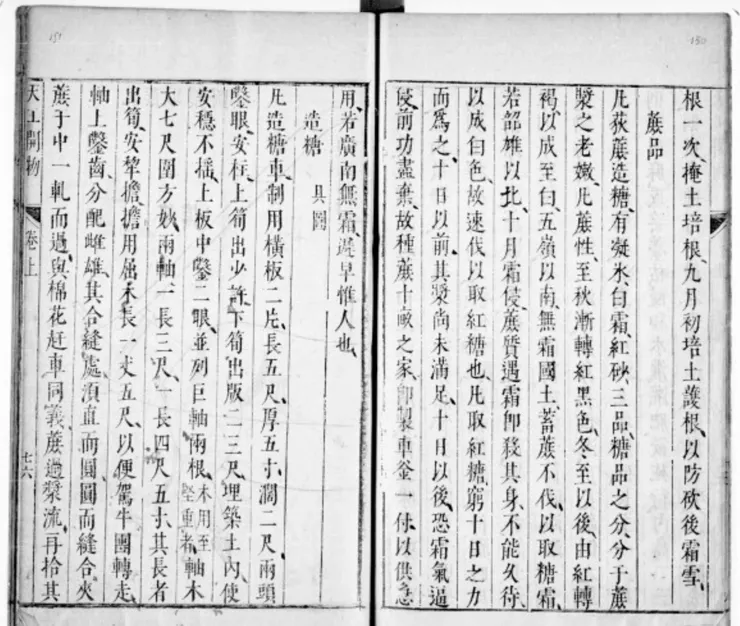 150
根一次、掩土培根、九月初培土護根、以防砍後霜雪、
蔗品
凡荻蔗造糖、有凝氷、白霜、紅砂、三品、糖品之分、分于蔗
漿之老嫩、凡蔗性、至秋漸轉紅黑色、冬至以後、由紅轉
褐、以成至白、五嶺以南、無霜國土、蓄蔗不伐、以取糖霜、
若韶雄以北、十月霜侵、蔗質遇霜卽殺、其身不能久待、
以成白色、故速伐以取紅糖也、凡取紅糖、窮十日之力
而爲之、十日以前、其漿尚未滿足、十日以後、恐霜氣逼
侵、前功盡棄、故種蔗十畝之家、卽製車釜一付、以供急
151
用、若廣南無霜、遲早惟人也、
造糖 具圖
凡造糖車、制用橫板二片、長五尺、厚五寸、闊二尺、兩頭
鑿眼安柱、上筍出少許、下筍出版二三尺、埋築土內、使
安穩不搖、上板中鑿二眼、並列巨軸兩根、木用至堅重者、軸木
大七尺圍方妙、兩軸一長三尺、一長四尺五寸、其長者
出筍安犂擔、擔用屈木、長一丈五尺、以便駕牛團轉走、
軸上鑿齒、分配雌雄、其合縫處、須直而圓、圓而縫合、夾
蔗于中、一軋而過、與棉花赶車同義、蔗過漿流、再拾其
天工開物 卷上 七六